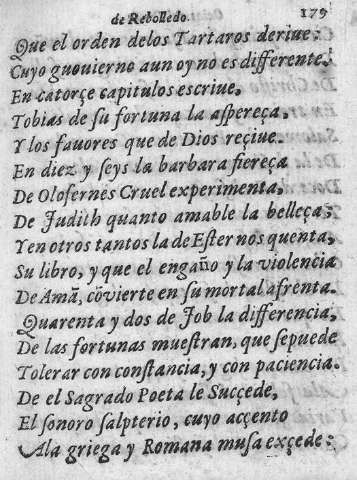 de Rebolledo. 179
Que el orden delos Tartaros deriue:
Cuyo guouierno aun oy no es differente.
En catorçe capitulos escriue,
Tobias de su fortuna la aspereça,
Y los fauores que de Dios reçiue.
En diez y seys la barbara fiereça
De Olofernes Cruel experimenta,
De Judith quanto amable la belleça;
Y en otros tantos la de Ester nos quenta,
Su libro, y que el engaño y la violencia
De Amã, cõvierte en su mortal afrenta.
Quarenta y dos de Job la differencia,
De las fortunas muestran, que se puede
Tolerar con constancia, y con paciencia.
De el Sagrado Poeta le Sucçede,
El sonoro salpterio, cuyo acçento
Ala griega y Romana musa exçede: